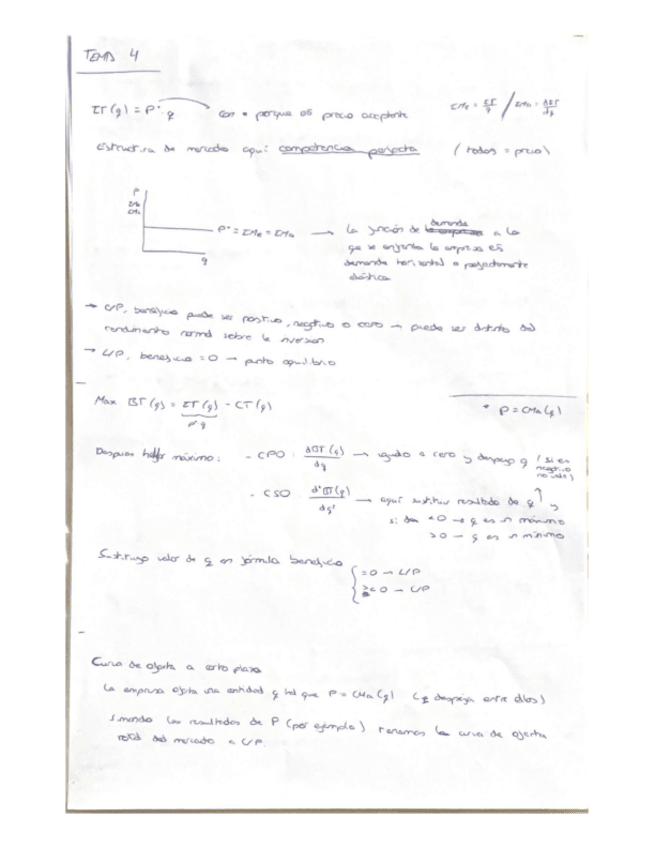 TEMA 4
IT(q) = P*·q con * porque es precio aceptante IMe = IT/q / IMa = dIT/dq
Estructura de mercado aquí: competencia perfecta (todos = precio)
P
IMe
IMa
P* = IMe = IMa → la función de demanda a la
que se enfrenta la empresa es
demanda horizontal o perfectamente
elástica
q
→ C/P, beneficio puede ser positivo, negativo o cero → puede ser distinto del
rendimiento normal sobre la inversión
→ L/P, beneficio = 0 → punto equilibrio
Max BT(q) = IT(q) - CT(q) * P = CMa(q)
p*·q
Después máximo: - CPO: dBT(q)/dq → igualo a cero y despejo q (si es
negativo
no vale)
- CSO: d²BT(q)/dq² → aquí sustituir resultado de q y
si da <0 → q es un máximo
>0 → q es un mínimo
Sustituyo valor de q en fórmula beneficio
=0 → L/P
0 → C/P
Curva de oferta a corto plazo
La empresa oferta una cantidad q tal que P = CMa(q) (q despejo entre ellos)
Sumando los resultados de P (por ejemplo) tenemos la curva de oferta
total del mercado a C/P.